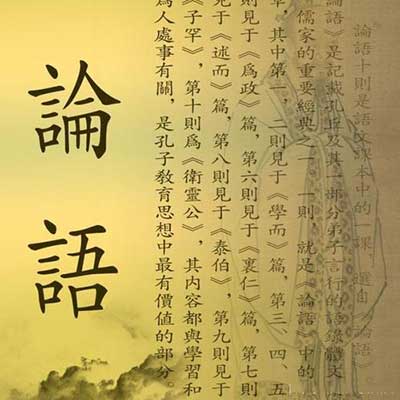 論語十則是語文課本中的一課，選自《論語》。
論語》是記載孔丘及其一部分弟子言行的語錄體文
儒家的重要經典之一。一則，就是《論語》中的
章，其中第一、二則見于《學而》篇，第三、四、五
則見于《爲政》篇，第六則見于《裏仁》篇，第七則
見于《述而》篇，第八則見于《泰伯》，第九則見于
《子罕》，第十則爲《衛靈公》，其內容都與學習和
爲人處事有關，是孔子教育思想中最有價值的部分。
論語